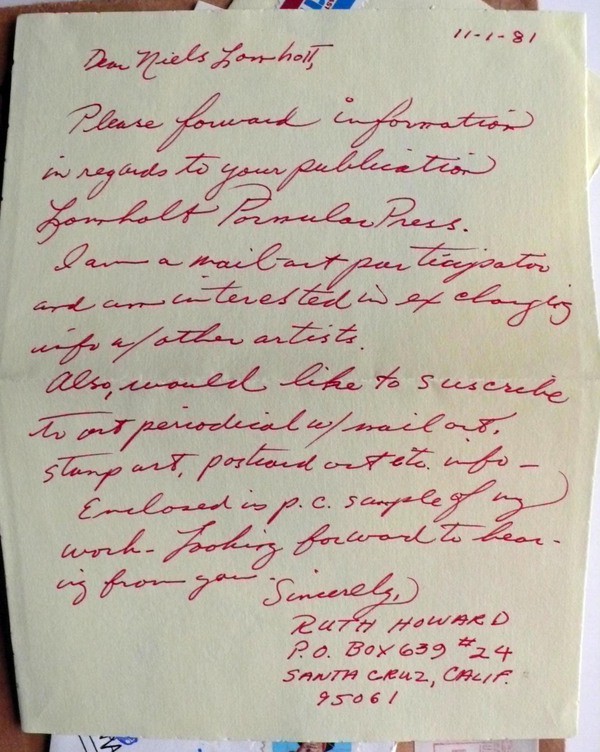 11-1-81
Dear Niels Lomholt,
Please forward information
in regards to your publication
Lomholt Formular Press.
I am a mail-art participator
and am interested in exchanging
info w/other artists.
Also, would like to suscribe
to art periodical w/mail art,
stamp art, postcard art etc. info -
Enclosed is p.c. sample of my
work - Looking forward to hear-
ing from you -
Sincerely,
RUTH HOWARD
P.O. BOX 639 #24
SANTA CRUZ, CALIF.
95061